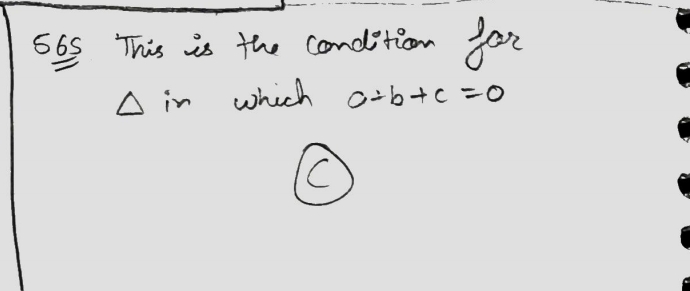 565 This is the condition for
△ in which a+b+c=0
C